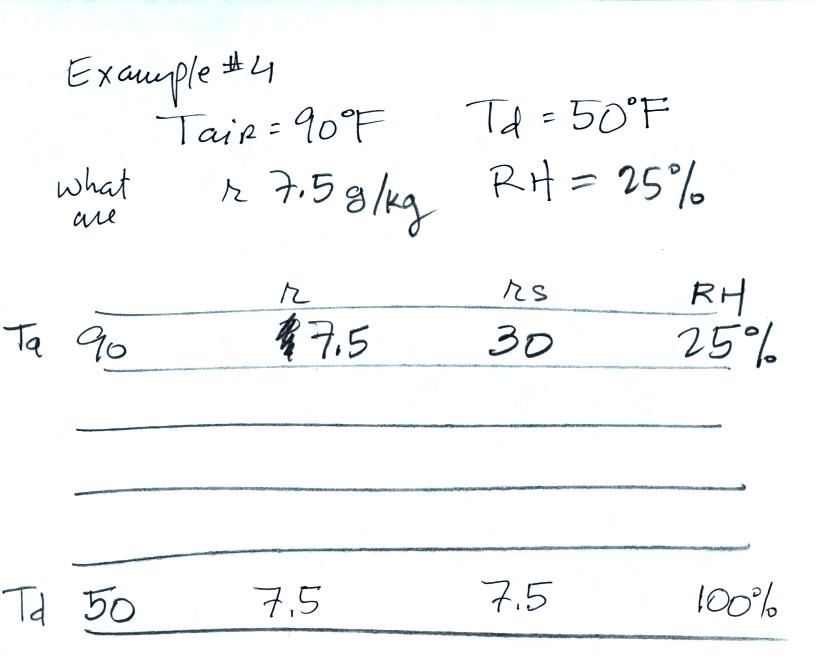 Example #4
Tair = 90°F Td = 50°F
what are r 7.5 g/kg RH = 25%
r rs RH
Ta 90 7.5 30 25%
Td 50 7.5 7.5 100%